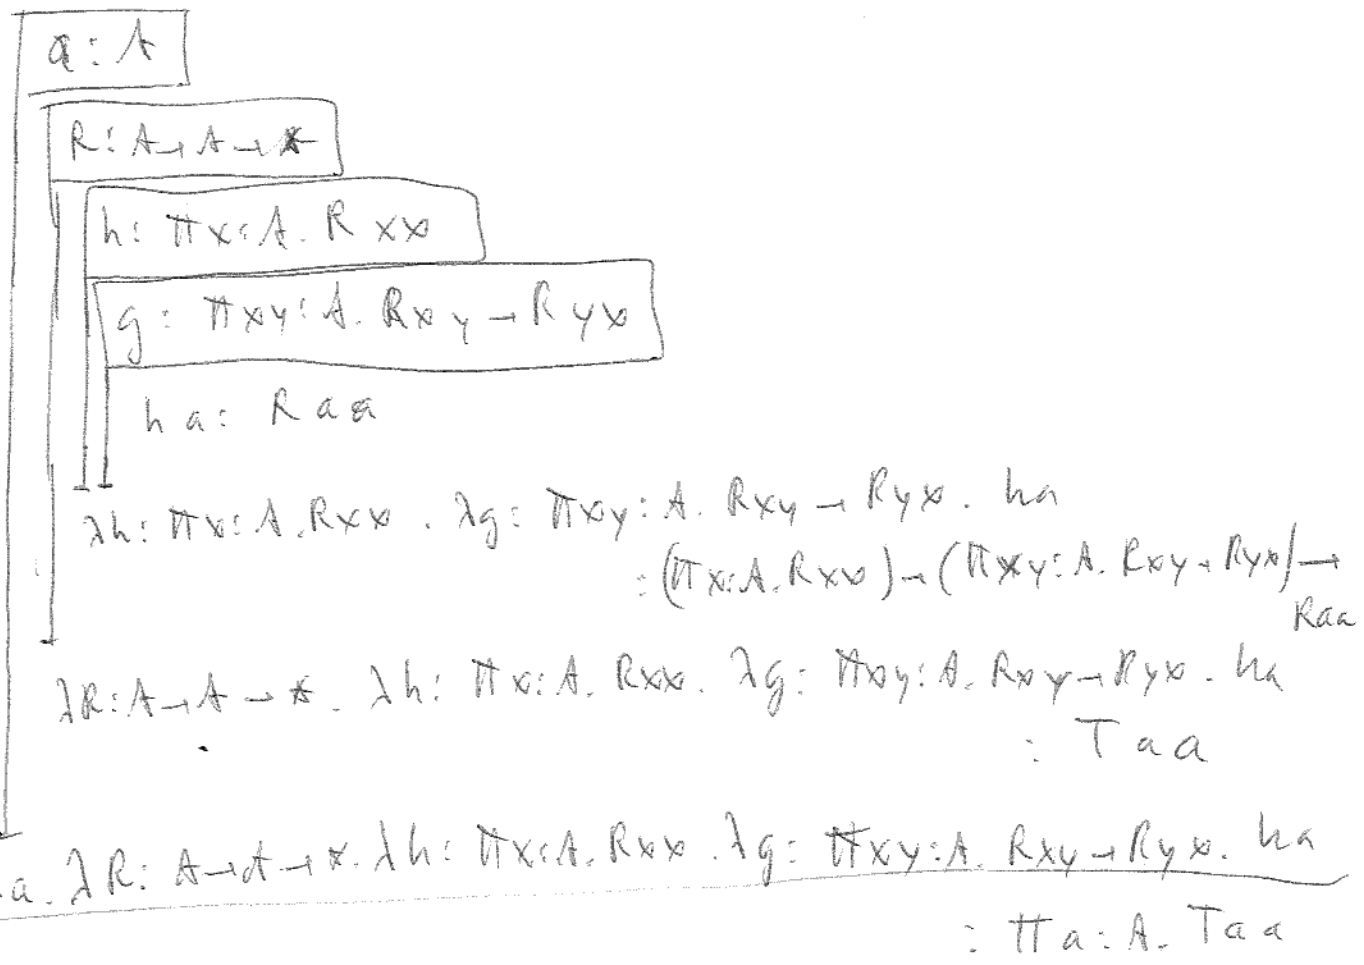 a : A
R : A → A → *
h : Πx : A. R x x
g : Πxy : A. R x y → R y x
h a : R a a
λh : Πx : A. Rxx . λg : Πxy : A. Rxy → Ryx. ha
: (Πx:A. Rxx) → (Πxy : A. Rxy → Ryx) →
Raa
λR : A → A → *. λh : Πx : A. Rxx. λg : Πxy : A. Rxy → Ryx. ha
: T a a
a. λR : A → A → *. λh : Πx:A. Rxx. λg : Πxy:A. Rxy → Ryx. ha
: Πa : A. Taa